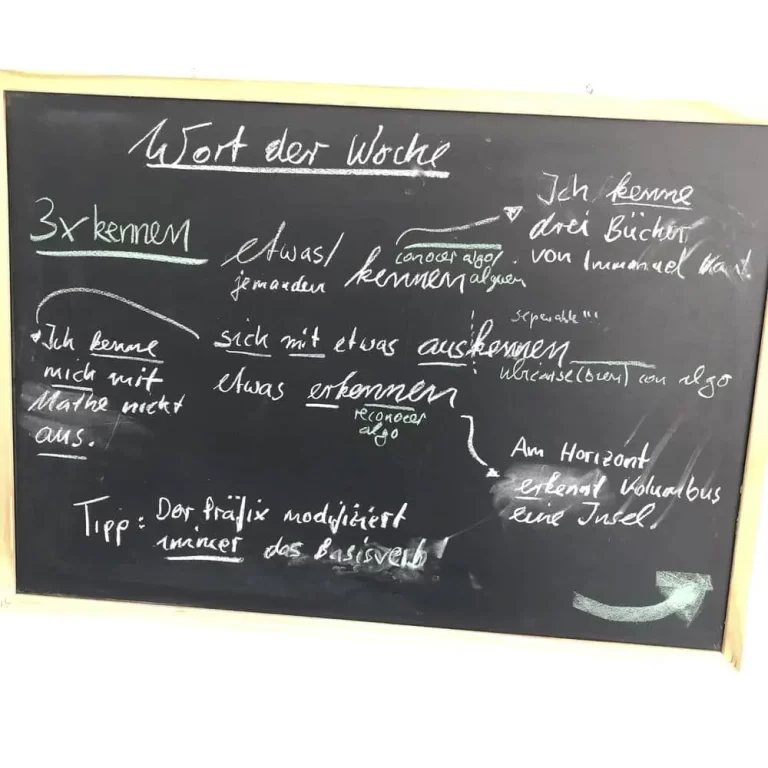 Wort der Woche
3x kennen
etwas/
jemanden kennen
conocer algo/
alguen
Ich kenne
drei Bücher
von Immanuel Kant.
sich mit etwas auskennen
separable!!!
con algo
Ich kenne
mich mit
Mathe nicht
aus.
etwas erkennen
reconocer
algo
Am Horizont
erkennt Kolumbus
eine Insel.
Tipp: Der Präfix modifiziert
immer das Basisverb!